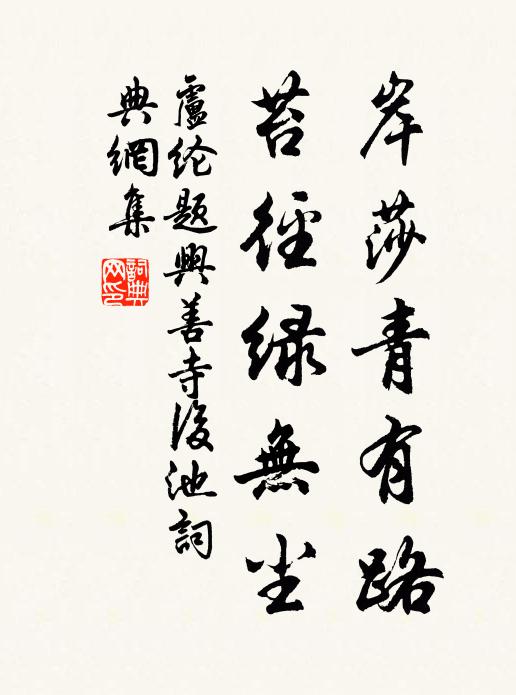 岸莎青有路
苔徑綠無尘
盧纶題興善寺後池詞
典網集
詞典
网印